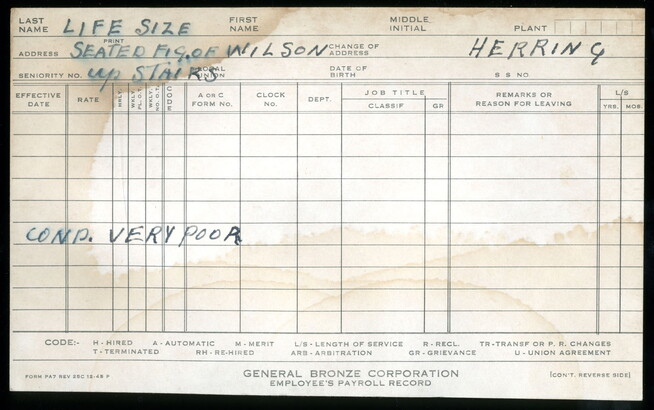 LAST NAME LIFE SIZE FIRST NAME MIDDLE INITIAL PLANT
PRINT
ADDRESS SEATED FIG. OF WILSON CHANGE OF ADDRESS HERRING
SENIORITY NO. UP STAIRS UNION DATE OF BIRTH S S NO.
EFFECTIVE DATE RATE HRLY. WKLY. PL. O.T. WKLY. NO. O.T. CODE A OR C FORM No. CLOCK No. DEPT. JOB TITLE CLASSIF GR REMARKS OR REASON FOR LEAVING L/S YRS. MOS.
COND. VERY POOR
CODE:- H - HIRED A - AUTOMATIC M - MERIT L/S - LENGTH OF SERVICE R - RECL. TR-TRANSF OR P. R. CHANGES
T - TERMINATED RH - RE-HIRED ARB - ARBITRATION GR - GRIEVANCE U - UNION AGREEMENT
FORM PA7 REV 25C 12-45 P GENERAL BRONZE CORPORATION (CON'T. REVERSE SIDE)
EMPLOYEE'S PAYROLL RECORD